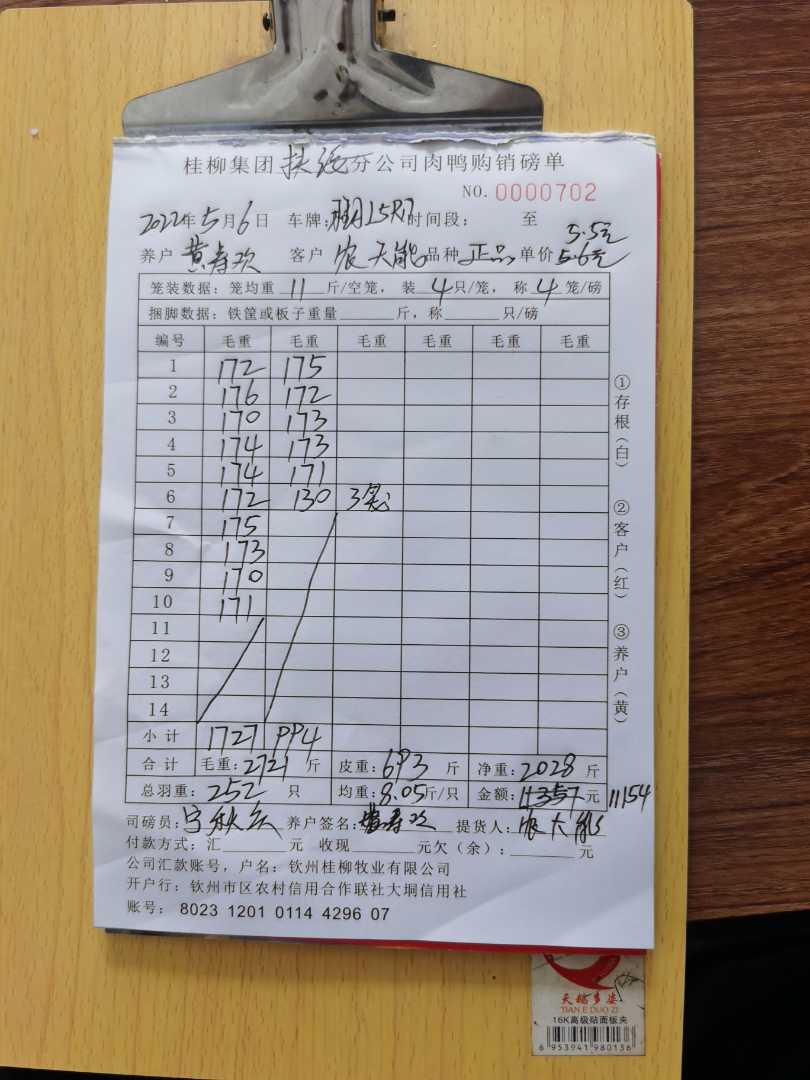 桂柳集团扶绥分公司肉鸭购销磅单
NO. 0000702
2022年5月6日 车牌: L5R 时间段: 至
5.5元
养户 黄寿欢 客户 农天能 品种 正品 单价 5.6元
笼装数据: 笼均重 11 斤/空笼, 装 4 只/笼, 称 4 笼/磅
捆脚数据: 铁筐或板子重量 斤, 称 只/磅
编号 毛重 毛重 毛重 毛重 毛重 毛重
1 172 175
2 176 172
3 170 173
4 174 173
5 174 171
6 172 130 3笼
7 175
8 173
9 170
10 171
11
12
13
14
小计 1727 994
合计 毛重: 2721 斤 皮重: 693 斤 净重: 2028 斤
总羽重: 252 只 均重: 8.05斤/只 金额: 11357元 11154
司磅员: 养户签名: 黄寿欢 提货人: 农天能
付款方式: 汇 元 收现 元欠(余): 元
公司汇款账号, 户名: 钦州桂柳牧业有限公司
开户行: 钦州市区农村信用合作联社大垌信用社
账号: 8023 1201 0114 4296 07
①存根(白)
②客户(红)
③养户(黄)
天瑞多姿
TIAN E DUO ZI
16K高级贴面板夹
6 953941 980136